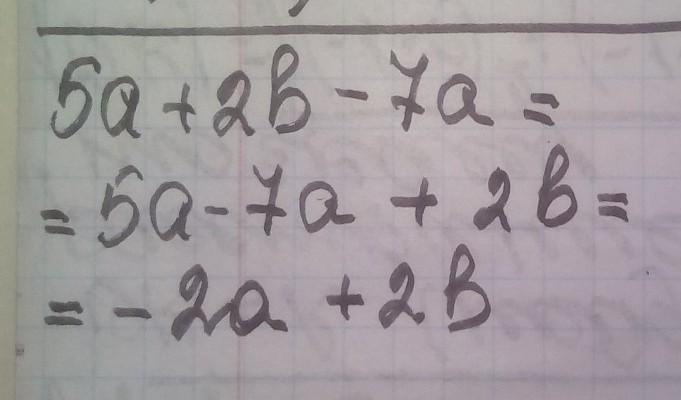 5a + 2b - 7a =
= 5a - 7a + 2b =
= - 2a + 2b